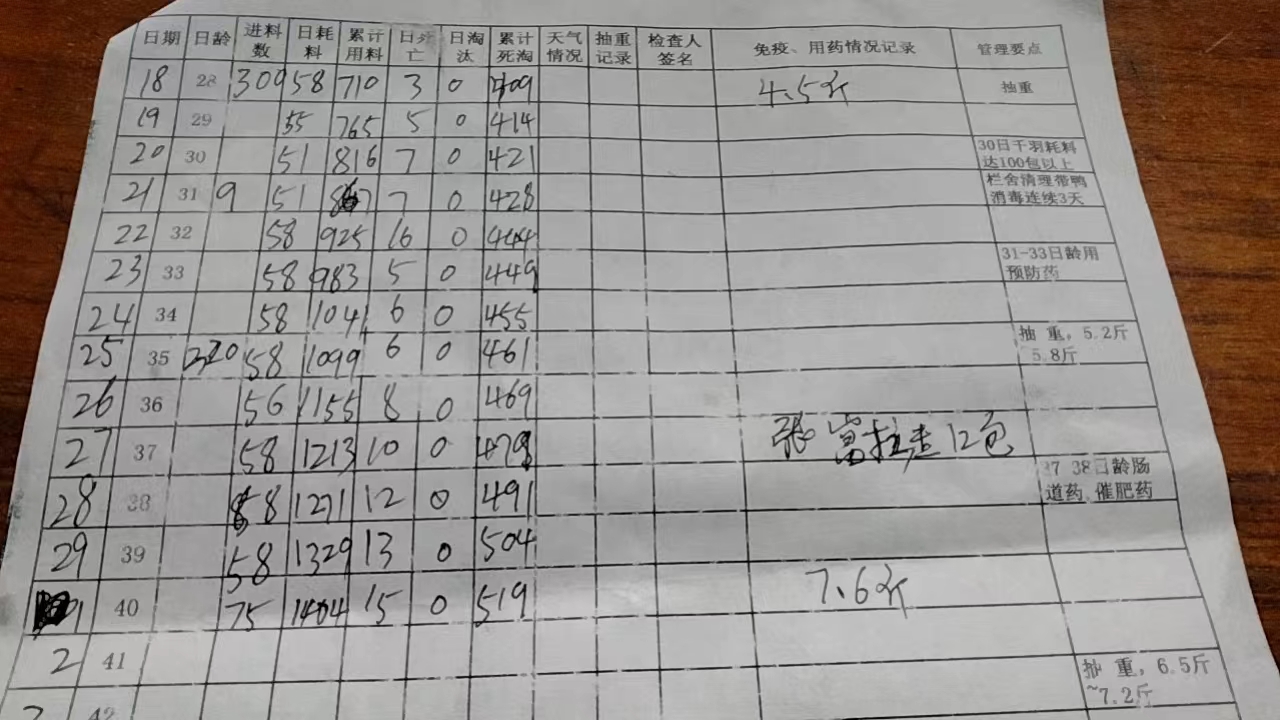 日期 日龄 进料数 日耗料 累计用料 日死亡 日淘汰 累计死淘 天气情况 抽重记录 检查人签名 免疫、用药情况记录 管理要点
18 28 309 58 710 3 0 409 4.5斤 抽重
19 29 55 765 5 0 414
20 30 51 816 7 0 421 30日千羽耗料达100包以上
21 31 9 51 867 7 0 428 栏舍清理带鸭消毒连续3天
22 32 58 925 16 0 444
23 33 58 983 5 0 449 31-33日龄用预防药
24 34 58 1041 6 0 455
25 35 220 58 1099 6 0 461 抽重，5.2斤 5.8斤
26 36 56 1155 8 0 469
27 37 58 1213 10 0 479 张富拉走12包
28 38 58 1271 12 0 491 37 38日龄肠道药 催肥药
29 39 58 1329 13 0 504
1 40 75 1404 15 0 519 7.6斤
2 41 抽重，6.5斤~7.2斤
42